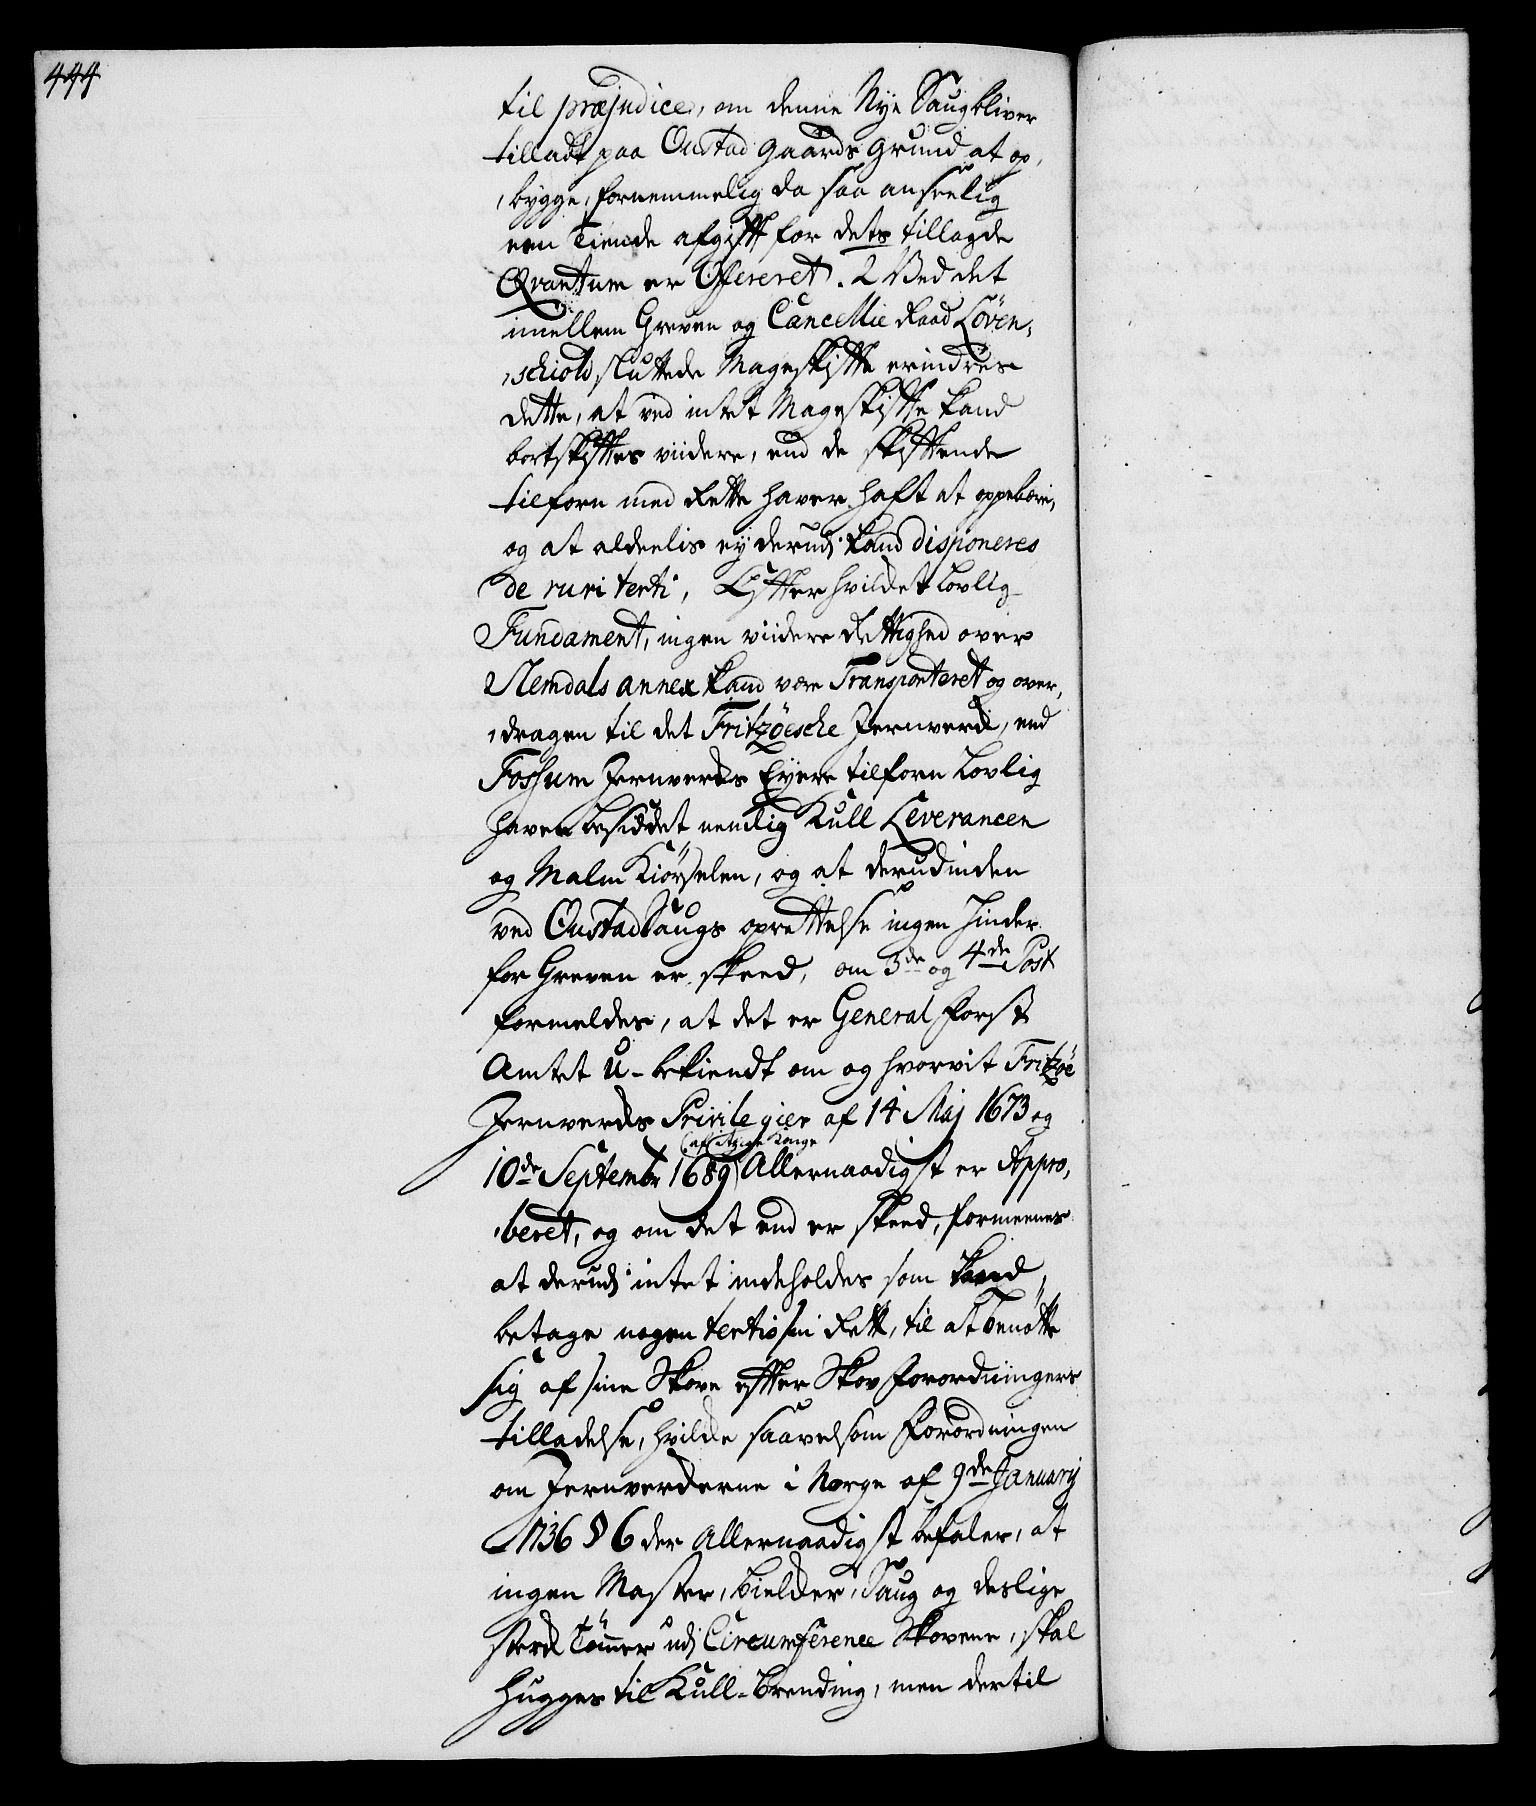 444
til præjudice, om denne Nye Saug bliver
tilladt paa Oustad Gaards Grund at op,
,bygge, fornemmelig da saa anseelig
een Tiende afgift for dets tillagde
Qvantum er Offereret. 2 Ved det
imellem Greven og Cancellie Raad Löven,
,schiold sluttede Mageskifte erindres
dette, at ved intet Mageskifte kand
bortskiftes viidere, end de skiftende
tilforn med Rette haver haft at oppebære,
og at aldeelis ey derudj kand disponeres
de ruri terti, Efter hvilcket Lovlig
Fundament, ingen viidere Rettighed over
Slemdals annex kand være Transporteret og over,
,dragen til det Fritzöesche Jernverck, end
Fossum Jernvercks Eyere tilforn Lovlig
haver besiddet nemlig Kull Leverancen
og Malm Kiörselen, og at derudinden
ved Oustad Saugs oprettelse ingen Hinder
for Greven er skeed, om 3de og 4de Post
formeldes, at det er General Forst
Amtet u-bekiendt om og hvorvit Fritzöe
Jernvercks Privilegier af 14 Maj 1673 og
10de Septembr 1689 Allernaadigst er Appro,
,beret, og om det end er skeed, formeenes
at derudj intet indeholdes som kand
betage nogen tertio sin Rett, til at benötte
sig af sine Skove efter Skov Forordningers
tilladelse, hvilcke saavelsom Forordningen
om Jernverckerne i Norge af 9de January
1736 § 6 der Allernaadigst befaler, at
ingen Master, Bielcker, Saug og deslige
sterck Tömmer udj Circumference Skovene, skal
hugges til Kull-Brending, men dertil